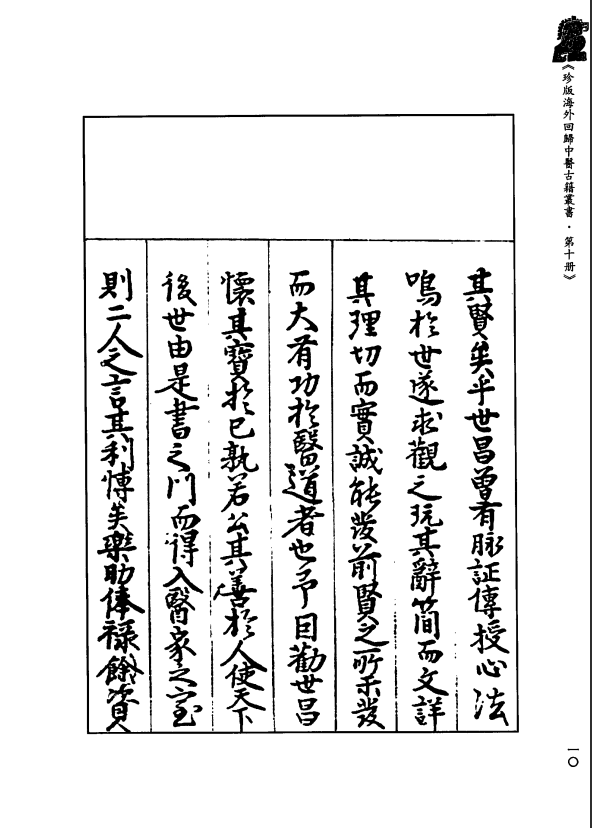 《珍版海外回歸中醫古籍叢書·第十册》
其賢矣乎世昌曾有脉証傳授心法
鳴於世遂求觀之玩其辭簡而文詳
其理切而實誠能發前賢之所未發
而大有功於醫道者也予因勸世昌
懷其寶於己孰若公其善於人使天下
後世由是書之門而得入醫家之室
則二人之言其利愽矣樂助俸禄餘資人
一〇